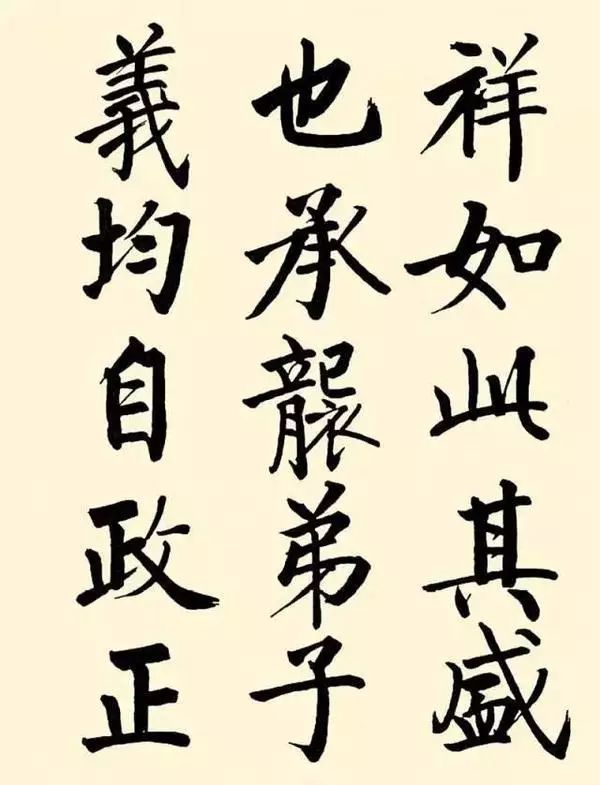 祥如此其盛
也承襲弟子
義均自政正